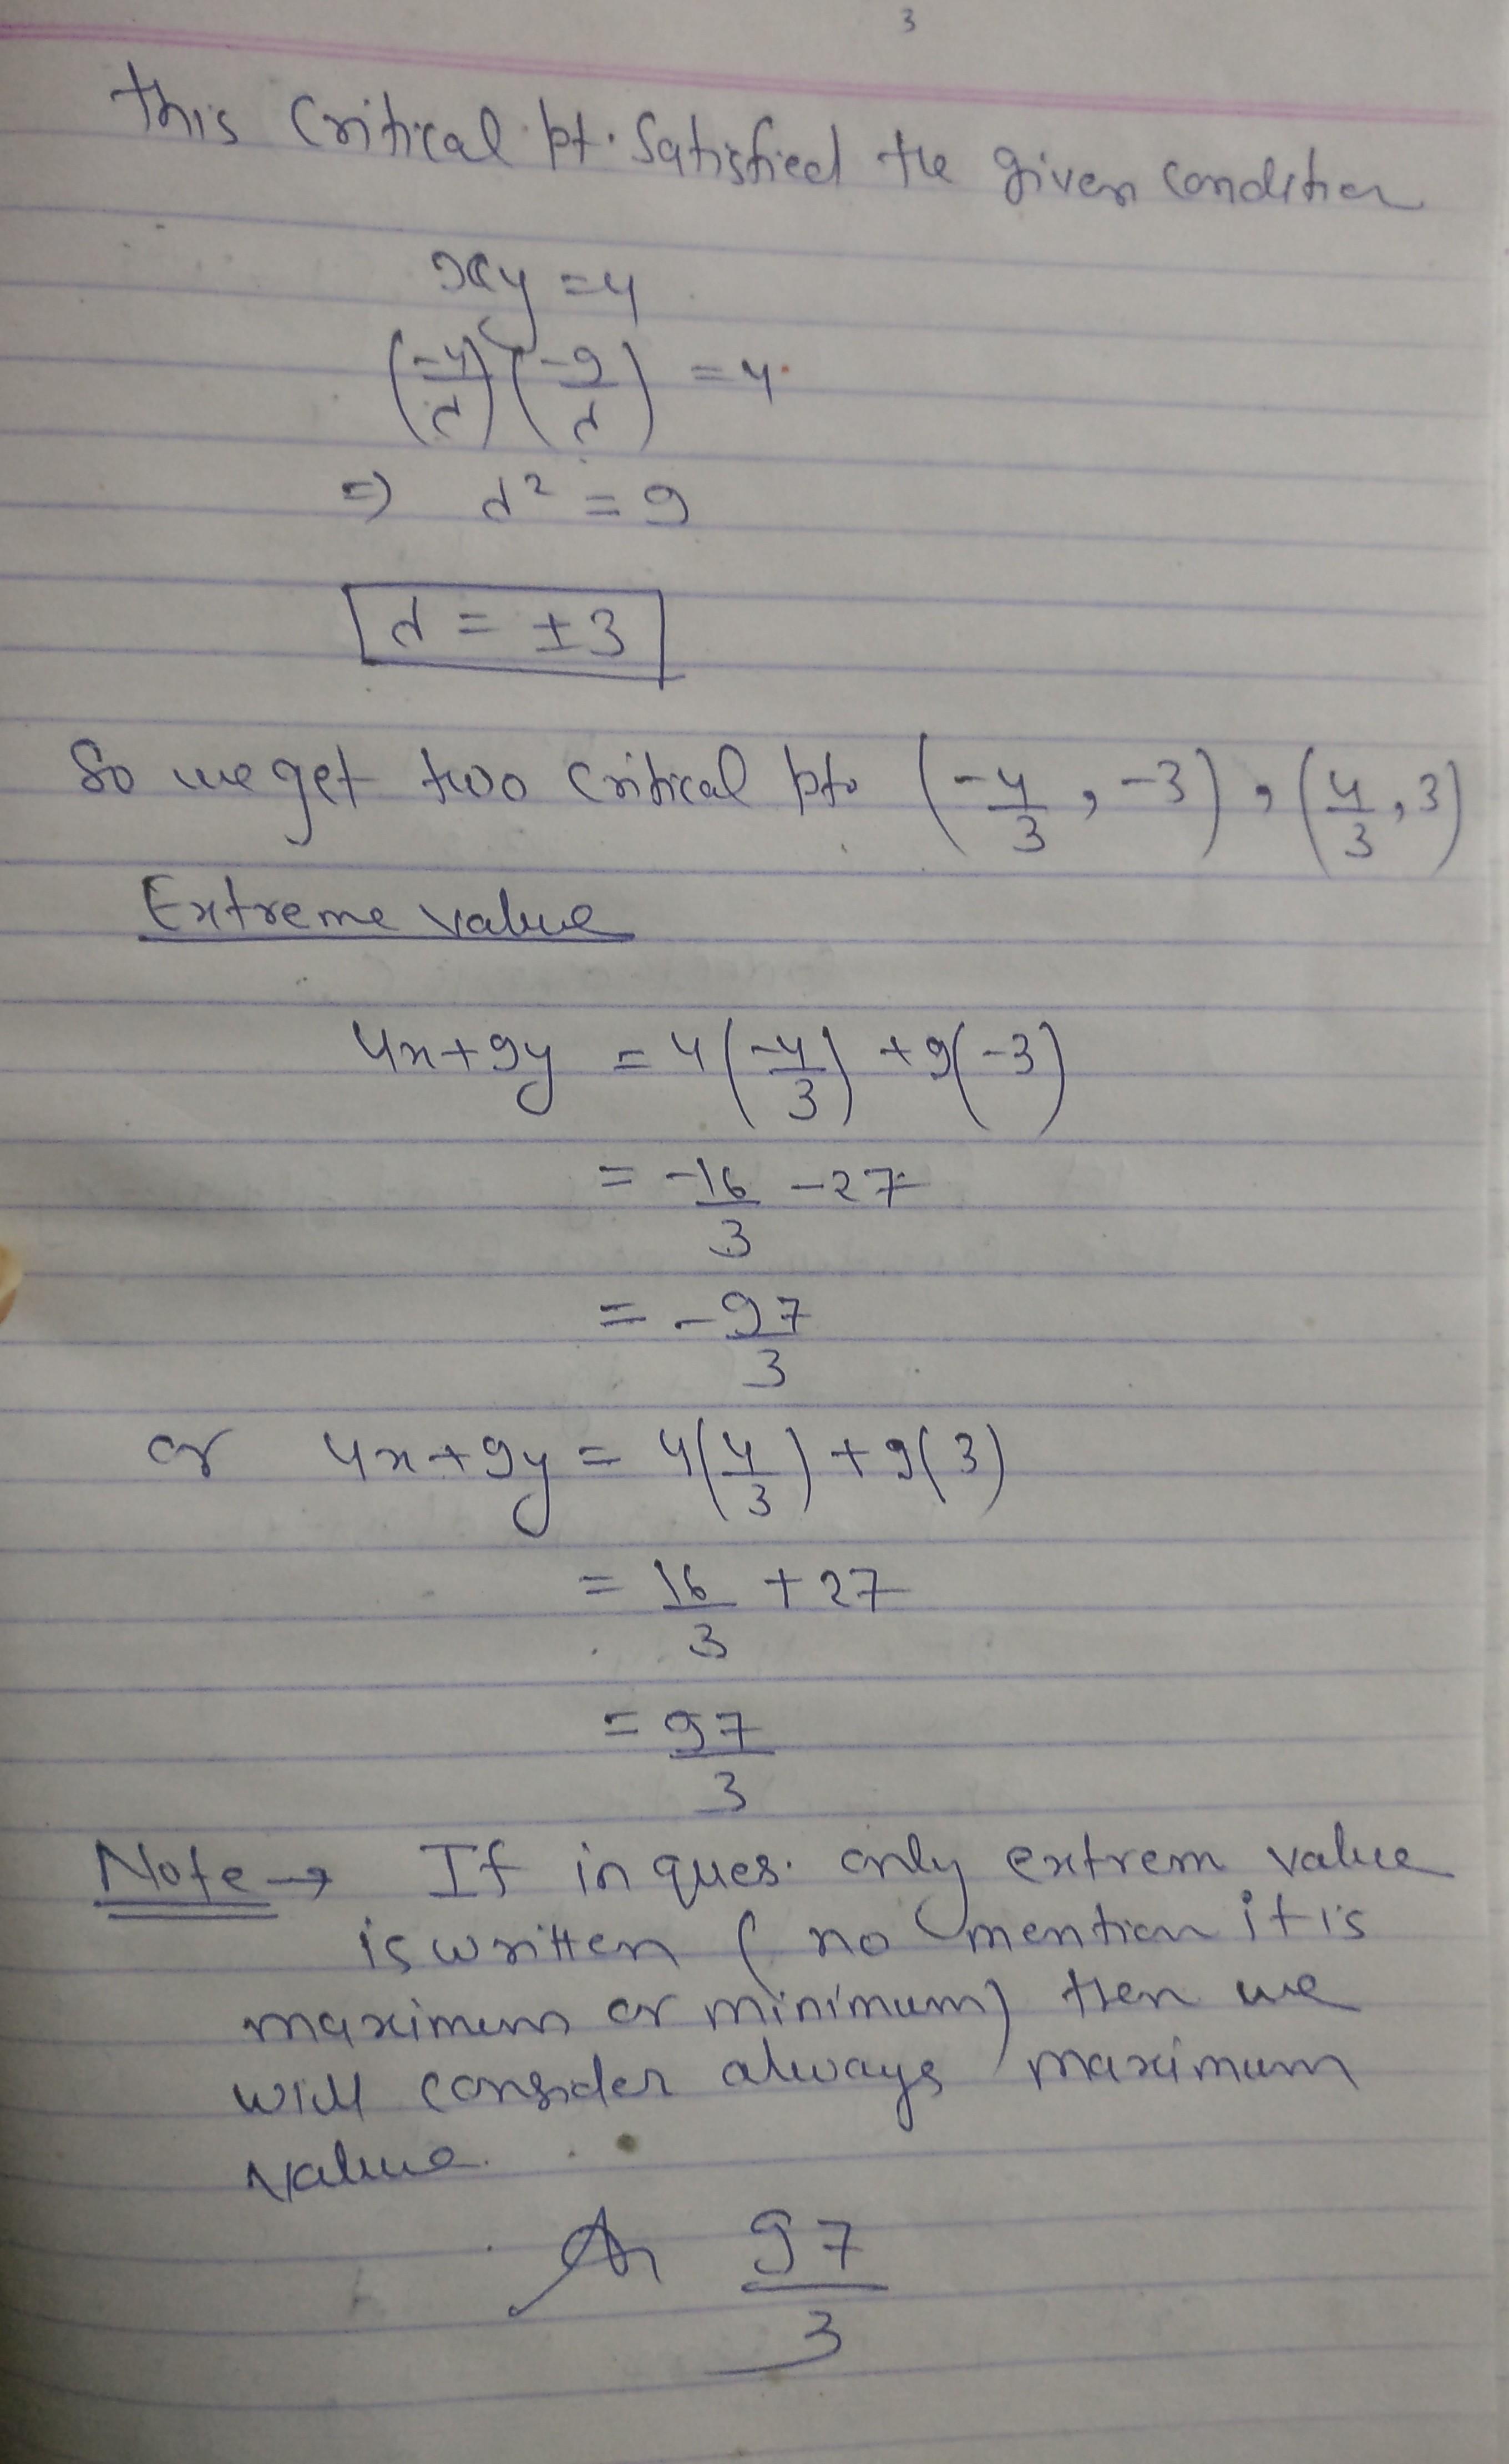 3
This Critical pt. Satisfied the given condition
xy = 4
(-4/λ) (-9/λ) = 4
=> λ² = 9
λ = ±3
So we get two critical pts (-4/3, -3), (4/3, 3)
Extreme value
4x+9y = 4(-4/3) +9(-3)
= -16/3 -27
= -97/3
or 4x+9y = 4(4/3) + 9(3)
= 16/3 +27
= 97/3
Note → If in ques. only extrem value
is written ( no mention it is
maximum or minimum) then we
will consider always maximum
value.
A 97/3